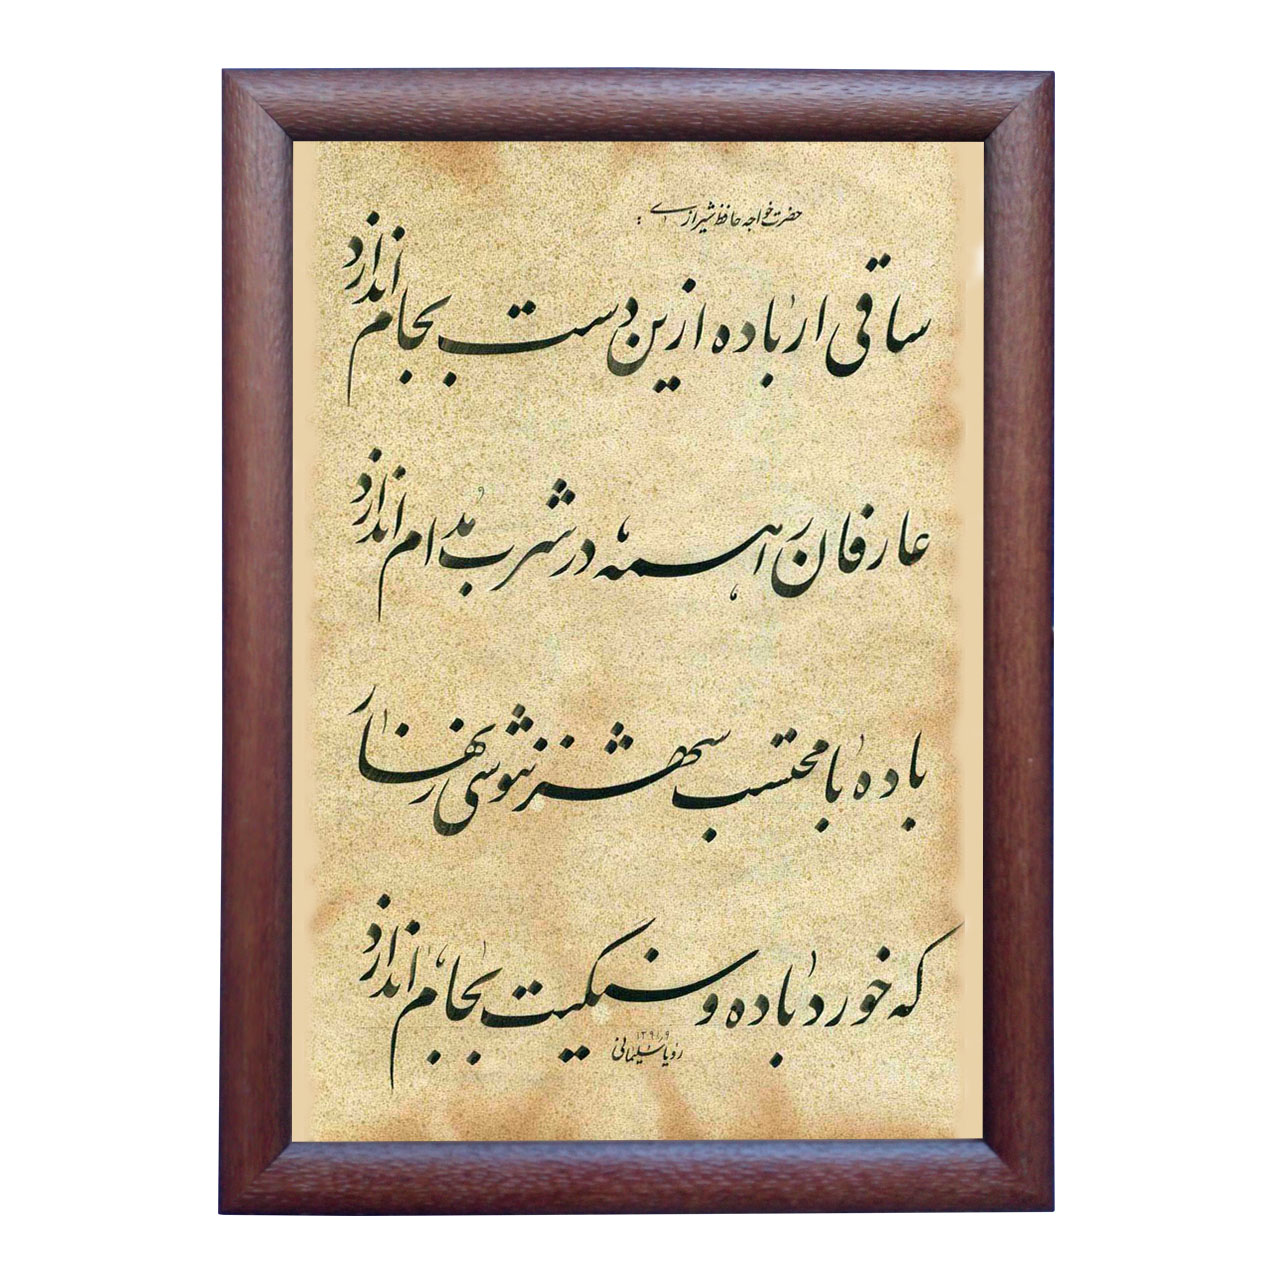 حضرت خواجه حافظ شیرازی :
ساقی ار باده ازین دست بجام اندازد
عارفان را همه در شرب مدام اندازد
باده با محتسب شهر ننوشی زنهار
که خورد باده و سنگیت بجام اندازد
۱۳۹۱،۹
رویا سلیمانی